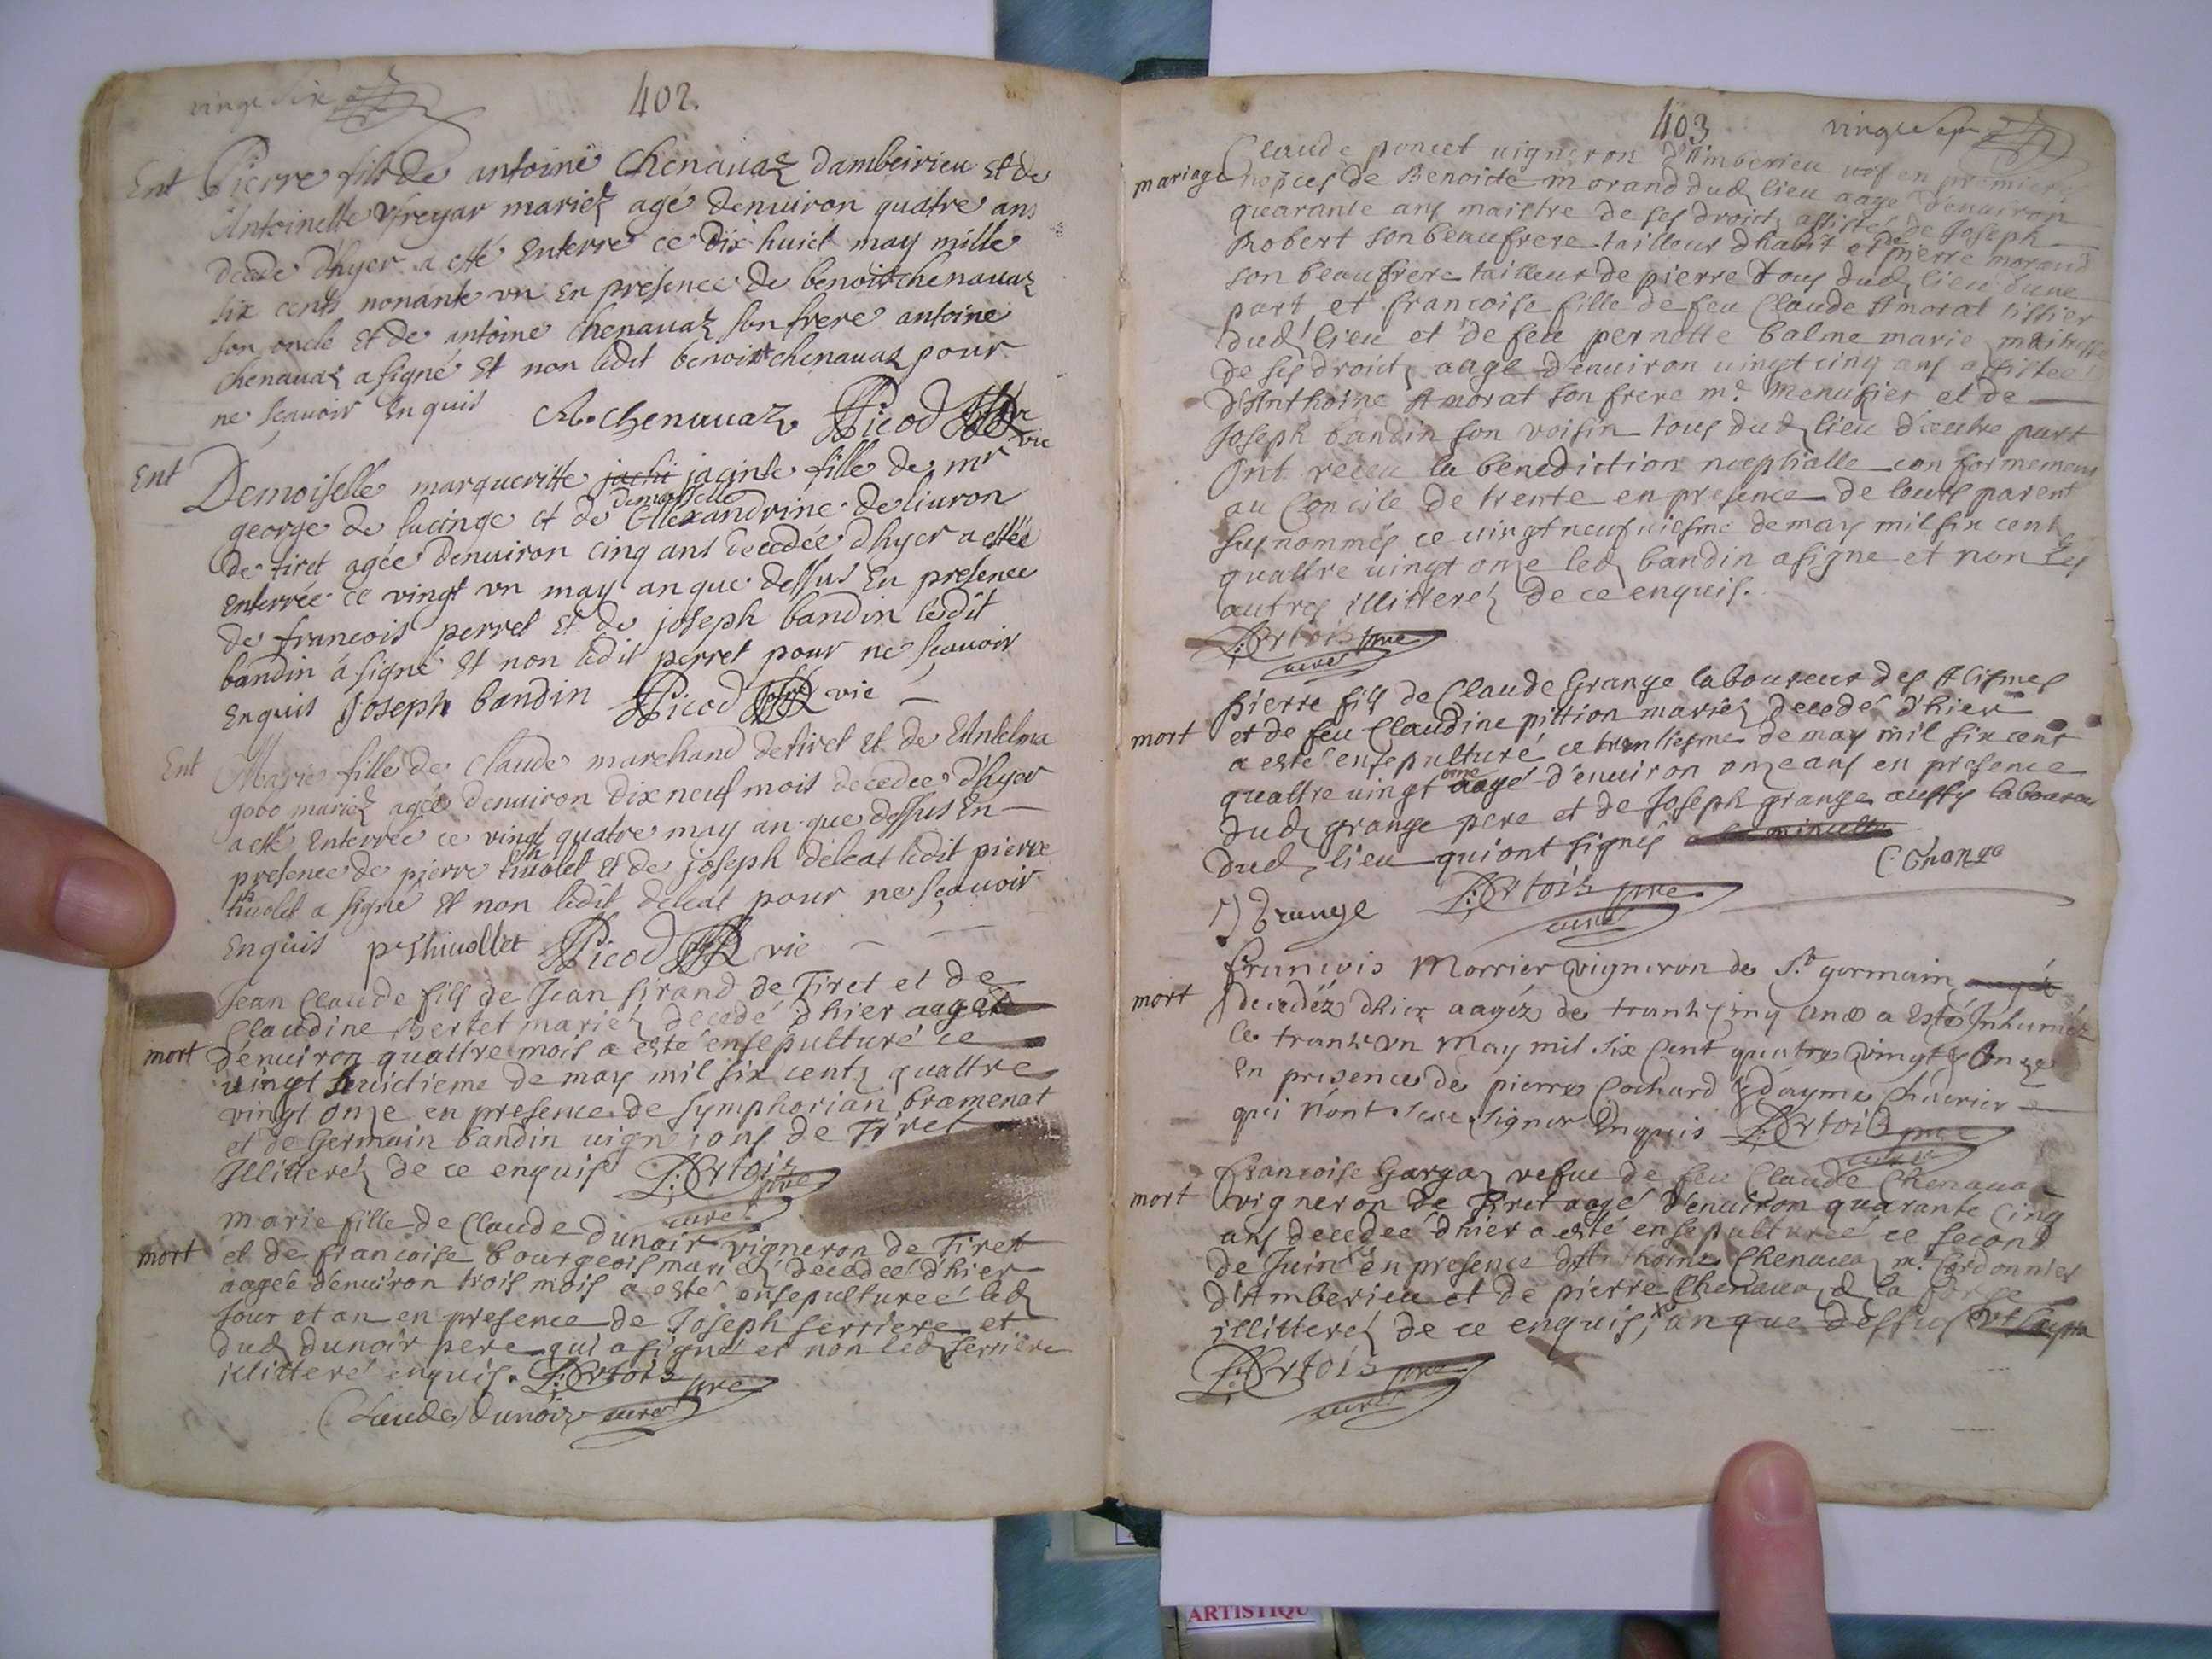 vingt six
402.
Ent Pierre fils de antoine Chenauaz dambeirieu Et de
Antoinette mariez agé denuiron quatre ans
decede d'hyer a esté Enterre ce dix huict may mille
six cents nonante vn En presence de benoit chenauaz
son oncle Et de antoine chenauaz son frere antoine
chenauaz a signé Et non ledit benoit chenauaz pour
ne scauoir Enquis A. chenauaz Picod vic
Ent Demoiselle margueritte jachi jacinte fille de mr
george de lucinge et de demoiselle Allexandrine de liuron
de tiret agée denuiron cinq ans decedée d'hyer a estée
Enterrée ce vingt vn may an que dessus En presence
de francois perret Et de joseph bandin ledit
bandin a signé Et non ledit perret pour ne scauoir
Enquis Joseph bandin Picod vic
Ent Marie fille de Claude marchand de tiret Et de Antelma
gobo mariez agée denuiron dix neuf mois decedee d'hyer
a esté Enterrée ce vingt quatre may an que dessus En
presence de pierre thiuolet Et de joseph deleat ledit pierre
thiuolet a signé Et non ledit deleat pour ne scauoir
Enquis p thiuollet Picod vic
Jean Claude fils de Jean Brand de Tiret et de
Claudine Bertet mariez decedé d'hier aagée
mort d'enuiron quattre mois a esté ensepulturé ce
uingt huictieme de may mil six centz quattre
vingt onze en presence de symphorian bramenat
et de Germain bandin uignerons de Tiret
Illitterez de ce enquis D: Ertois pre
curé
marie fille de Claude Dunoir vigneron de Tiret
mort et de francoise bourgeois mariez decedeé d'hier
aagée d'enuiron trois mois a esté ensepultureé led
jour et an en presence de Joseph ferriere et
dud dunoir pere qui a signé et non led ferriere
illitteré enquis. D: Ertois pre
Claude dunoir curé
403 vingt sept
Claude poncet uigneron d'Amberieu uef en premieres
mariage nopces de Benoicte morand dud lieu aagé d'enuiron
quarante ans maistre de ses droicts assisté de Joseph
Robert son beaufrere tailleur d'habit et de pierre morand
son beaufrere tailleur de pierre tous dud lieu d'une
part, et francoise fille de feu Claude Amorat tissier
dud lieu et de feu pernette balme marie maitresse
de ses droicts aagé d'enuiron uingt cinq ans assistée
d'Anthoine Amorat son frere me. menusier et de
Joseph bandin son voisin tous dud lieu d'autre part
Ont receu la benediction nuptialle conformement
au Concile de trente en presence de leurs parent
susnommés ce uingt neufuiesme de may mil six cent
quattre uingt onze led bandin a signe et non les
autres illitterez de ce enquis.
D: Ertois pre
curé
pierre fils de Claude Grange laboureur des Alismes
et de feu Claudine pittion mariez decedé d'hier
mort a esté ensepulturé ce trentiesme de may mil six cent
quattre uingt onze aagé d'enuiron onze ans en presence
dud grange pere et de Joseph grange aussy laboureur
dud lieu qui ont signés
C. Grange
J Grange D: Ertois pre
curé
francois Morrier vigneron de St. germain
mort decedéz d'hier aagéz de trante cinq ans a Esté Inhuméz
le trante vn May mil six Cent quatre vingt Onze
En presence de pierre Cochard & daymé Chaurier
qui n'ont sceu signer Enquis D: Ertois pre
curé
francoise Gargaz vefue de feu Claude Chenauaz
mort vigneron de Tiret aagé d'enuiron quarante cinq
ans decedeé d'hier a esté ensepultureé ce second
de Juin en presence d'Anthoine Chenauaz me. Cordonnier
d'Amberieu et de pierre Chenauaz d
illitterez de ce enquis, an que dessus
D: Ertois pre
curé
ARTISTIQU